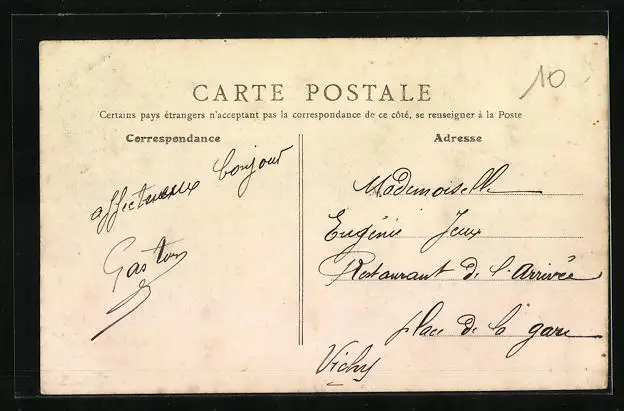 10
CARTE POSTALE
Certains pays étrangers n'acceptant pas la correspondance de ce côté, se renseigner à la Poste
Correspondance
affectueux bonjour
Gaston
Adresse
Mademoiselle
Eugénie Jeux
Restaurant de l'Arrivée
place de la gare
Vichy